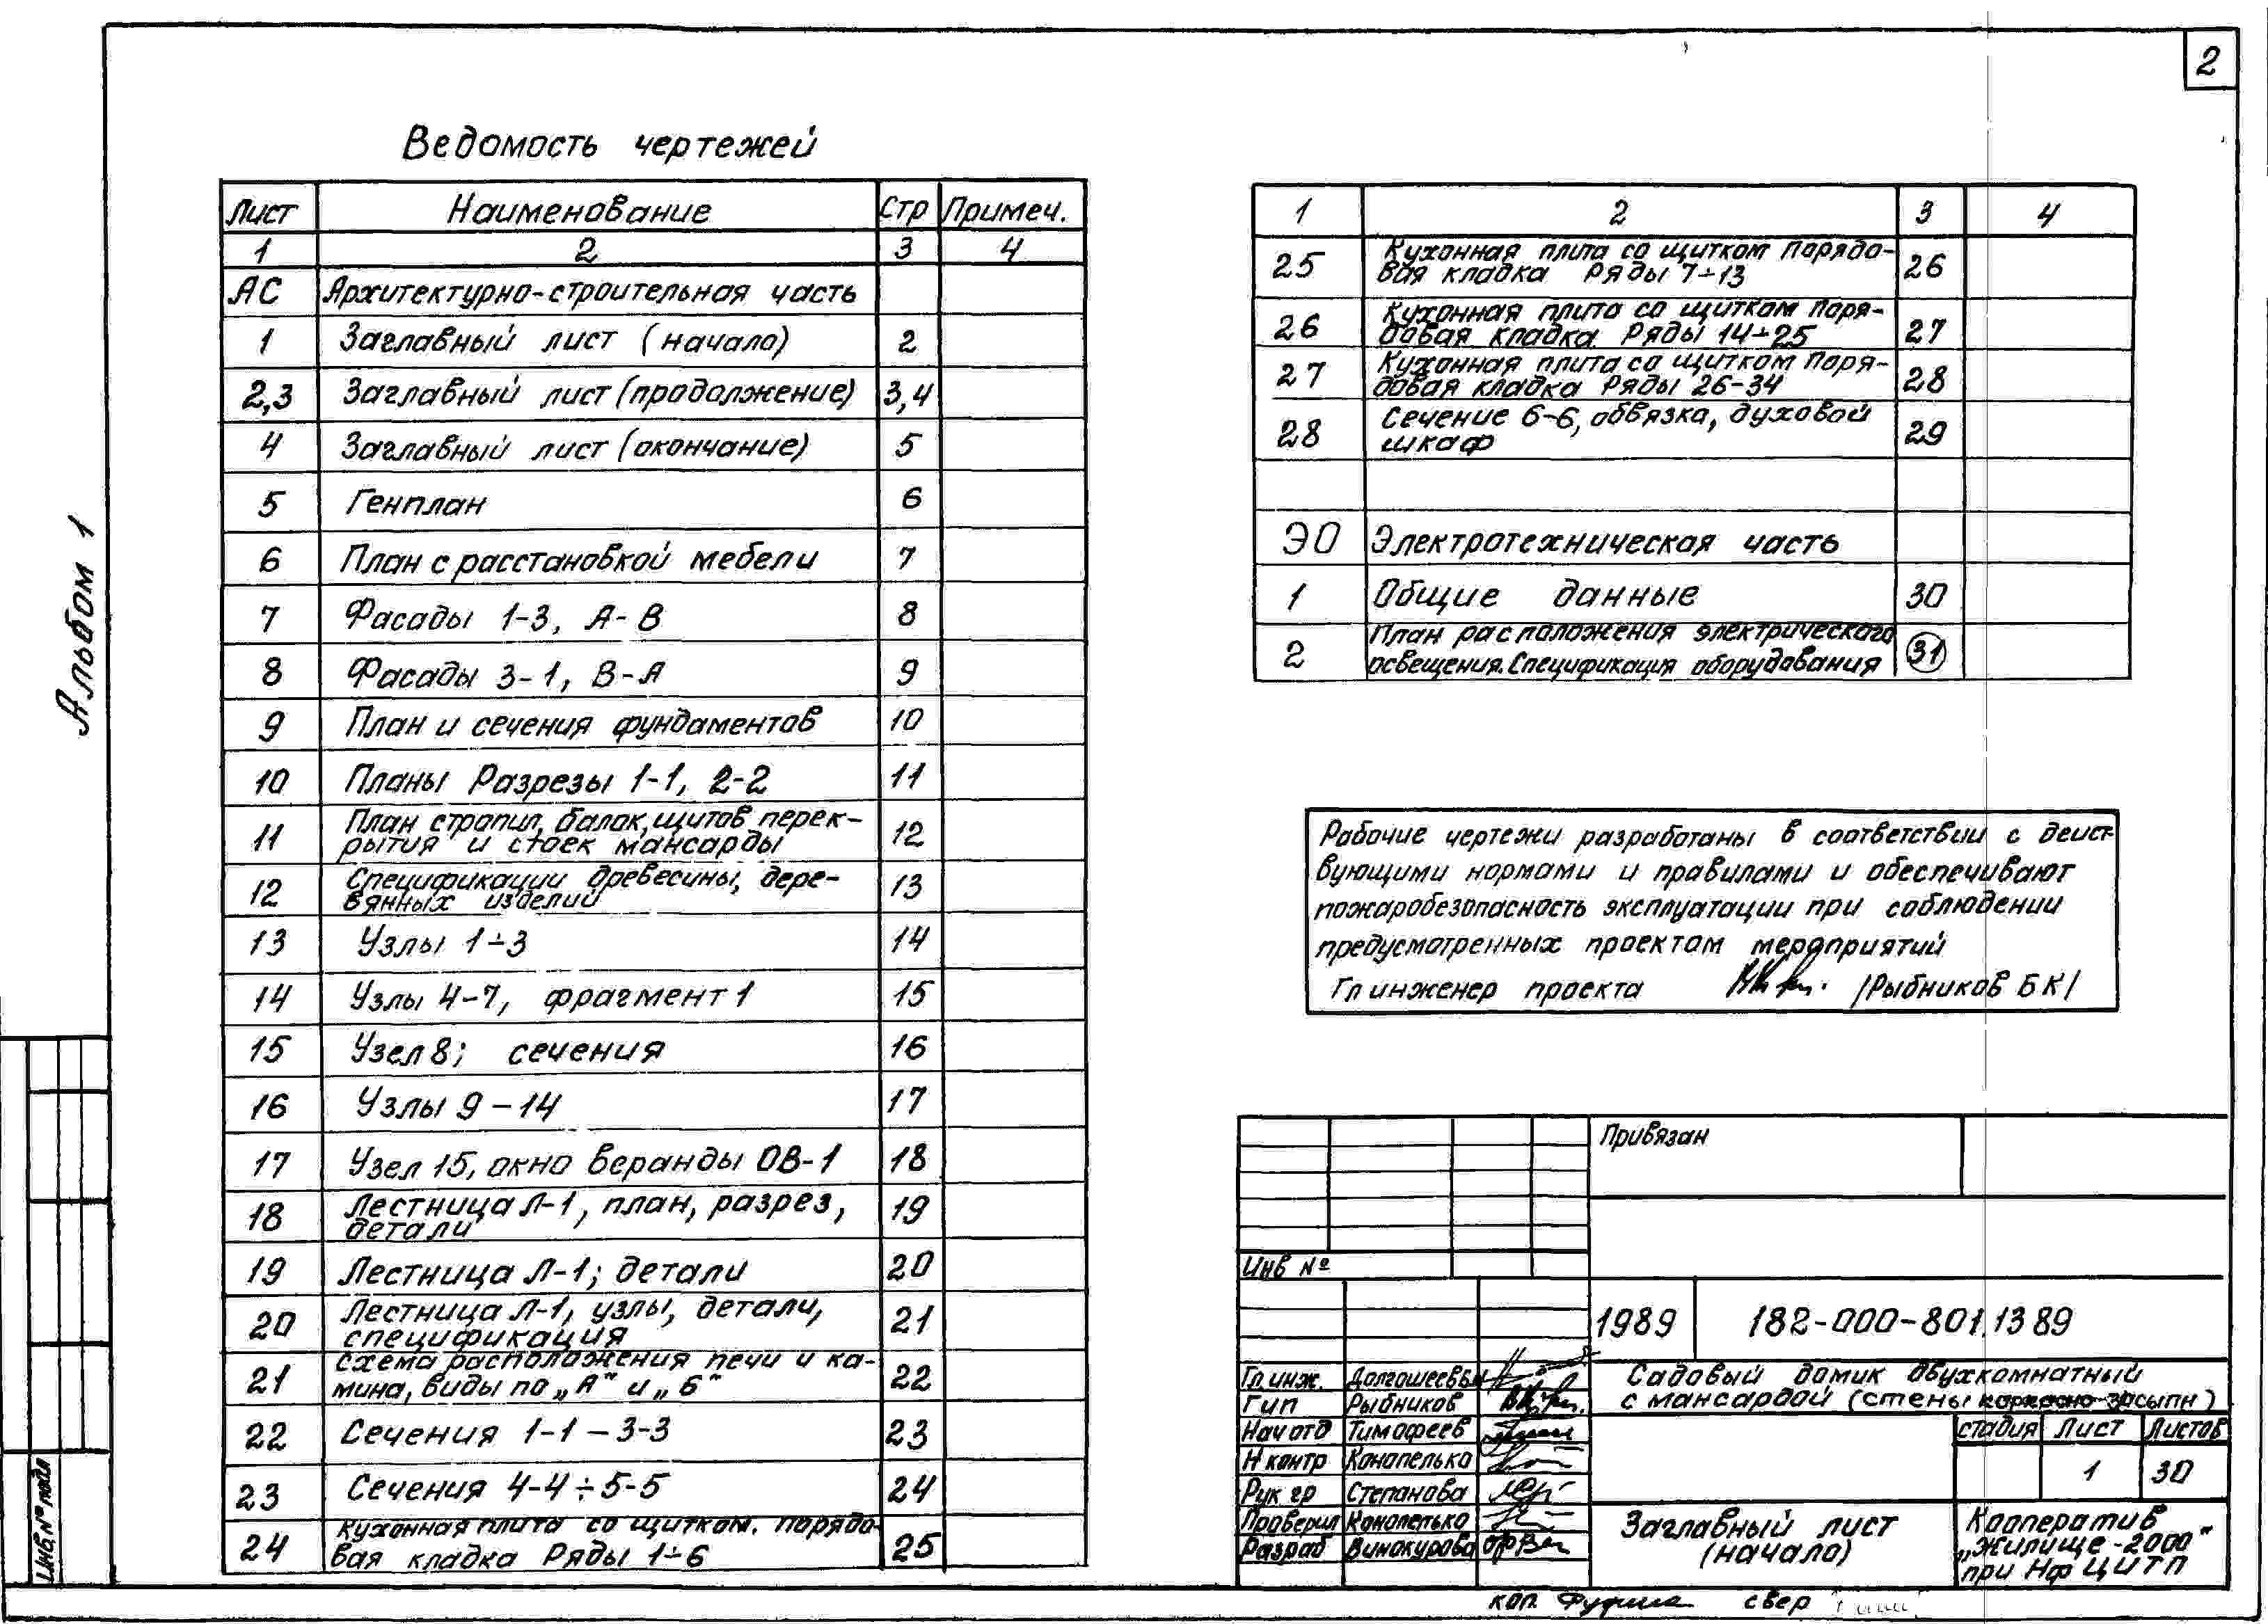 2
Альбом 1
Ведомость чертежей
Лист Наименование Стр Примеч.
1 2 3 4
АС Архитектурно-строительная часть
1 Заглавный лист (начало) 2
2,3 Заглавный лист (продолжение) 3,4
4 Заглавный лист (окончание) 5
5 Генплан 6
6 План с расстановкой мебели 7
7 Фасады 1-3, А-В 8
8 Фасады 3-1, В-А 9
9 План и сечения фундаментов 10
10 Планы Разрезы 1-1, 2-2 11
11 План стропил, балок, щитов перек-
рытия и стоек мансарды 12
12 Спецификации древесины, дере-
вянных изделий 13
13 Узлы 1÷3 14
14 Узлы 4-7, фрагмент 1 15
15 Узел 8; сечения 16
16 Узлы 9-14 17
17 Узел 15, окно веранды ОВ-1 18
18 Лестница Л-1, план, разрез,
детали 19
19 Лестница Л-1; детали 20
20 Лестница Л-1, узлы, детали,
спецификация 21
21 Схема расположения печи и ка-
мина, виды по „А" и „Б" 22
22 Сечения 1-1 - 3-3 23
23 Сечения 4-4 ÷ 5-5 24
24 Кухонная плита со щитком. Порядо-
вая кладка Ряды 1÷6 25
1 2 3 4
25 Кухонная плита со щитком Порядо-
вая кладка Ряды 7÷13 26
26 Кухонная плита со щитком Поря-
довая кладка Ряды 14÷25 27
27 Кухонная плита со щитком Поря-
довая кладка Ряды 26-34 28
28 Сечение 6-6, обвязка, духовой
шкаф 29
ЭО Электротехническая часть
1 Общие данные 30
2 План расположения электрического
освещения. Спецификация оборудования 31
Рабочие чертежи разработаны в соответствии с дейст-
вующими нормами и правилами и обеспечивают
пожаробезопасность эксплуатации при соблюдении
предусмотренных проектом мероприятий
Гл инженер проекта /Рыбников БК/
Привязан
Инв №
1989 182-000-801.13 89
Гл. инж. Долгошеев
Гип Рыбников
Нач отд Тимофеев
Н контр Конопелько
Рук гр Степанова
Проверил Конопелько
Разраб Винокурова
Садовый домик двухкомнатный
с мансардой (стены каркасно-засыпн)
стадия Лист Листов
1 30
Заглавный лист
(начало)
Кооператив
„Жилище-2000"
при Нф ЦИТП
Инв. № подл
коп. свер